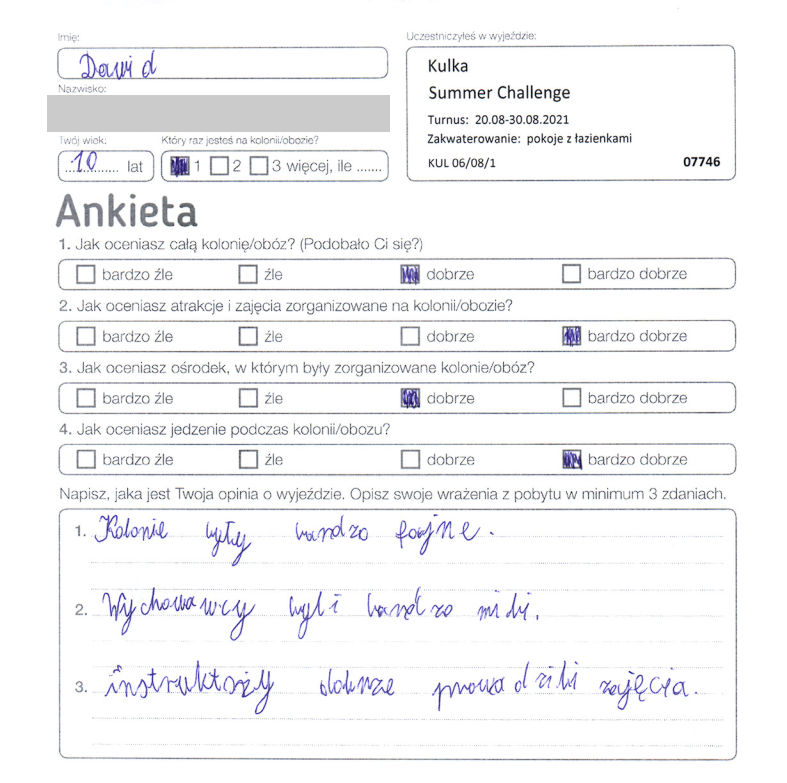 Imię:
Dawid
Nazwisko:
Twój wiek:
10 lat
Który raz jesteś na kolonii/obozie?
1 2 3 więcej, ile .......
Uczestniczyłeś w wyjeździe:
Kulka
Summer Challenge
Turnus: 20.08-30.08.2021
Zakwaterowanie: pokoje z łazienkami
KUL 06/08/1 07746
Ankieta
1. Jak oceniasz całą kolonię/obóz? (Podobało Ci się?)
bardzo źle źle dobrze bardzo dobrze
2. Jak oceniasz atrakcje i zajęcia zorganizowane na kolonii/obozie?
bardzo źle źle dobrze bardzo dobrze
3. Jak oceniasz ośrodek, w którym były zorganizowane kolonie/obóz?
bardzo źle źle dobrze bardzo dobrze
4. Jak oceniasz jedzenie podczas kolonii/obozu?
bardzo źle źle dobrze bardzo dobrze
Napisz, jaka jest Twoja opinia o wyjeździe. Opisz swoje wrażenia z pobytu w minimum 3 zdaniach.
1. Kolonie były bardzo fajne.
2. Wychowawcy byli bardzo mili.
3. instruktoży dobrze prowadzili zajęcia.